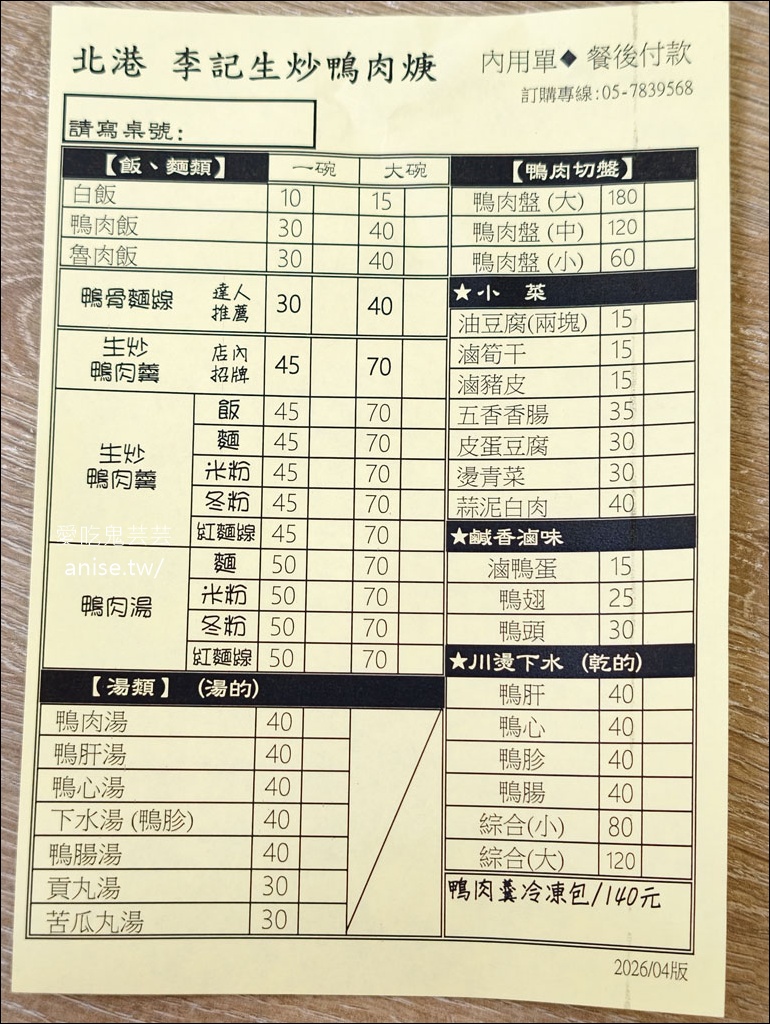 北港 李記生炒鴨肉焿
內用單◆餐後付款
訂購專線:05-7839568
請寫桌號:
【飯、麵類】 一碗 大碗
白飯 10 15
鴨肉飯 30 40
魯肉飯 30 40
鴨骨麵線 達人推薦 30 40
生炒鴨肉羹 店內招牌 45 70
生炒鴨肉羹
飯 45 70
麵 45 70
米粉 45 70
冬粉 45 70
紅麵線 45 70
鴨肉湯
麵 50 70
米粉 50 70
冬粉 50 70
紅麵線 50 70
【湯類】 (湯的)
鴨肉湯 40
鴨肝湯 40
鴨心湯 40
下水湯 (鴨胗) 40
鴨腸湯 40
貢丸湯 30
苦瓜丸湯 30
【鴨肉切盤】
鴨肉盤 (大) 180
鴨肉盤 (中) 120
鴨肉盤 (小) 60
★小 菜
油豆腐(兩塊) 15
滷筍干 15
滷豬皮 15
五香香腸 35
皮蛋豆腐 30
燙青菜 30
蒜泥白肉 40
★鹹香滷味
滷鴨蛋 15
鴨翅 25
鴨頭 30
★川燙下水 (乾的)
鴨肝 40
鴨心 40
鴨胗 40
鴨腸 40
綜合(小) 80
綜合(大) 120
鴨肉羹冷凍包/140元
2026/04版
愛吃鬼芸芸
anise.tw/